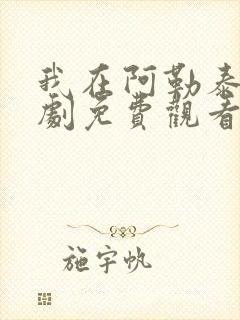 我在阿勒泰
劇免費觀看
施宇帆